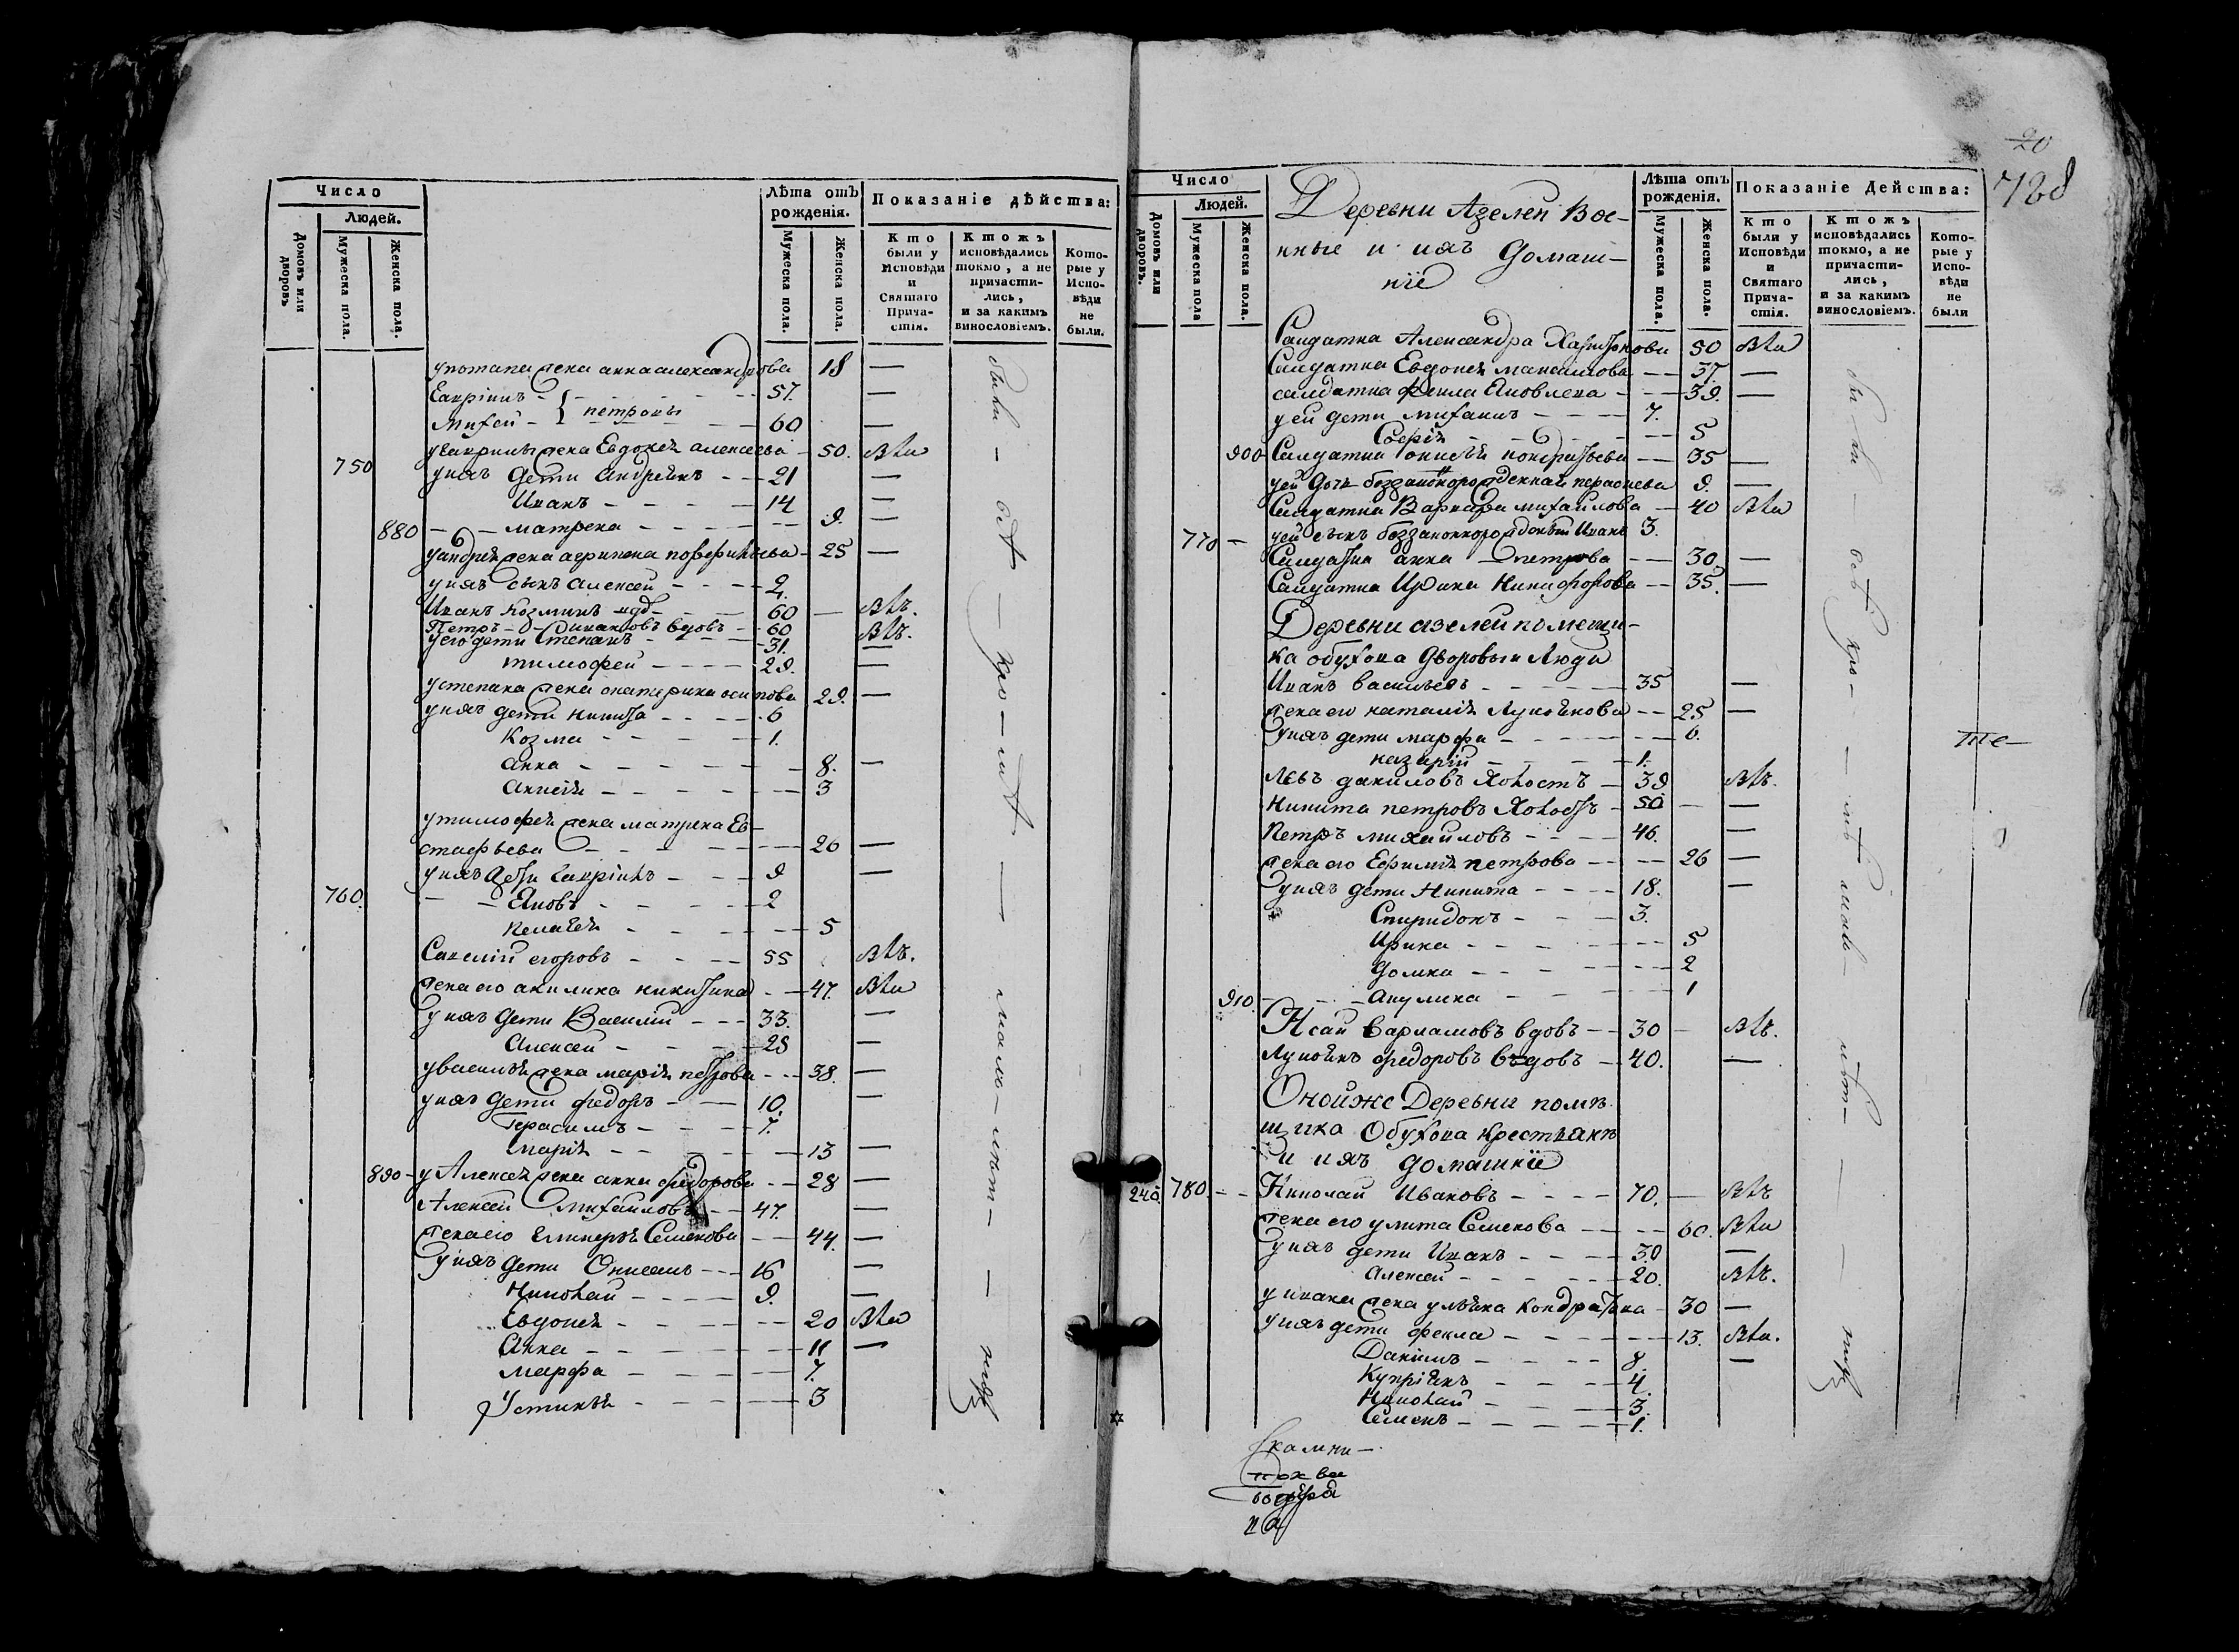 Число
Людей.
Домовъ или дворовъ
Мужеска пола.
Женска пола.
Лѣта отъ рожденія.
Мужеска пола.
Женска пола.
Показаніе дѣйства:
Кто были у Исповѣди и Святаго Прича-стія.
Ктожъ исповѣдались токмо, а не причасти-лись, и за какимъ винословіемъ.
Кото-рые у Испо-вѣди не были.
употапа жена анна александрова 18 —
Гавріилъ 57. —
Михей } петровы 60 —
угаврилы жена Евдокея алексеева 50. Бла
750 унихъ дети андреянъ 21 —
Иванъ 14 —
880 матрена 9. —
уандреяна жена агрипена 25 —
унихъ сынъ алексей 2.
Иванъ Козминъ вдовъ 60 Блъ.
Петръ ивановъ вдовъ 60 Блъ.
уего дети Степанъ 31. —
тимофей 29. —
устепана жена екатерина осипова 29. —
унихъ дети никита 6
Козма 1.
Анна 8. —
Анисія 3
утимофея жена матрена Ев-
стафьева 26 —
унихъ дети Гавріилъ 9 —
760. Яковъ 2
Пелагея 5
Савелій егоровъ 55 Блъ.
жена его акилина никитина 47. Бла
унихъ дети Василій 33. —
Алексей 28 —
увасилья жена марія петрова 38. —
унихъ дети федоръ 10. —
Герасимъ 7.
марія 13 —
890 у Алексея жена анна федорова 28 —
Алексей Михайловъ 47. —
жена его Гликерія Семенова 44. —
унихъ дети Онисимъ 16 —
Николай 9. —
Евдокея 20 Бла
Анна 11 —
марфа 7.
Устинья 3
20
728
Число
Людей.
Домовъ или дворовъ.
Мужеска пола
Женска пола.
Деревни Азелей Вое-
нные и ихъ домаш-
ніе
Лѣта отъ рожденія.
Мужеска пола.
Женска пола.
Показаніе Дейстма:
Кто были у Исповѣди и Святаго Прича-стія.
Ктожъ исповѣдались токмо, а не причасти-лись, и за какимъ винословіемъ.
Кото-рые у Испо-вѣди не были
Салдатка Александра Харитонова 50 Бла
Салдатка Евдокея максимова 37. —
салдатка Фекла Яковлева 39. —
уей дети михаилъ 7.
Софія 5
900 Салдатка анисья кондратьева 35 —
уей дочь беззаконнорожденная 9. —
Салдатка Варвара михайлова 40 Бла
770 уей сынъ беззаконнорожденый Иванъ 3.
Салдатка анна петрова 30. —
Салдатка Ирина Никифорова 35. —
Деревни азелей помещи-
ка обухова дворовыя люди
Иванъ васильевъ 35 —
жена его наталія Лукоянова 25 —
унихъ дети марфа 6.
назарій 1.
левъ даниловъ холостъ 39 Блъ.
никита петровъ холостъ 50 —
Петръ михайловъ 46. —
жена его Ефимія петрова 26 —
унихъ дети Никита 18. —
Спиридонъ 3.
Ирина 5
Домна 2
910. Акулина 1
Исай варламовъ вдовъ 30 Блъ.
Лукоянъ федоровъ въдовъ 40. —
Онойже Деревни помѣ
щика Обухова крестьянѣ
и ихъ домашніе
240. 780. Николай Ивановъ 70. Блъ
жена его улита Семенова 60. Бла
унихъ дети Иванъ 30 —
Алексей 20. Блъ.
у ивана жена ульяна кондратьева 30 —
унихъ дети фекла 13. Бла.
Данилъ 8. —
Купріянъ 4.
Николай 3.
Семенъ 1.